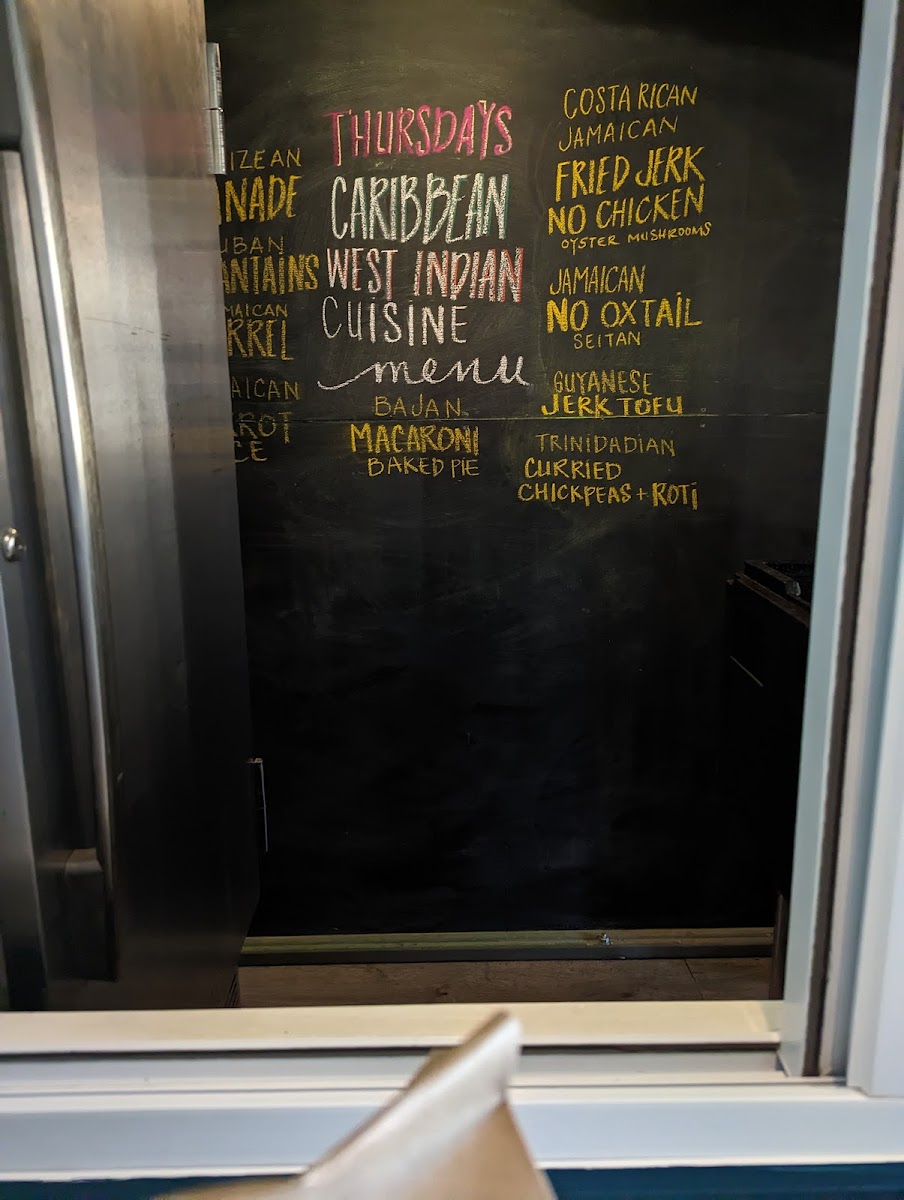 IZEAN
NADE
UBAN
ANTAINS
MAICAN
RREL
AICAN
ROT
CE
THURSDAYS
CARIBBEAN
WEST INDIAN
CUISINE
menu
BAJAN
MACARONI
BAKED PIE
COSTA RICAN
JAMAICAN
FRIED JERK
NO CHICKEN
OYSTER MUSHROOMS
JAMAICAN
NO OXTAIL
SEITAN
GUYANESE
JERK TOFU
TRINIDADIAN
CURRIED
CHICKPEAS + ROTI